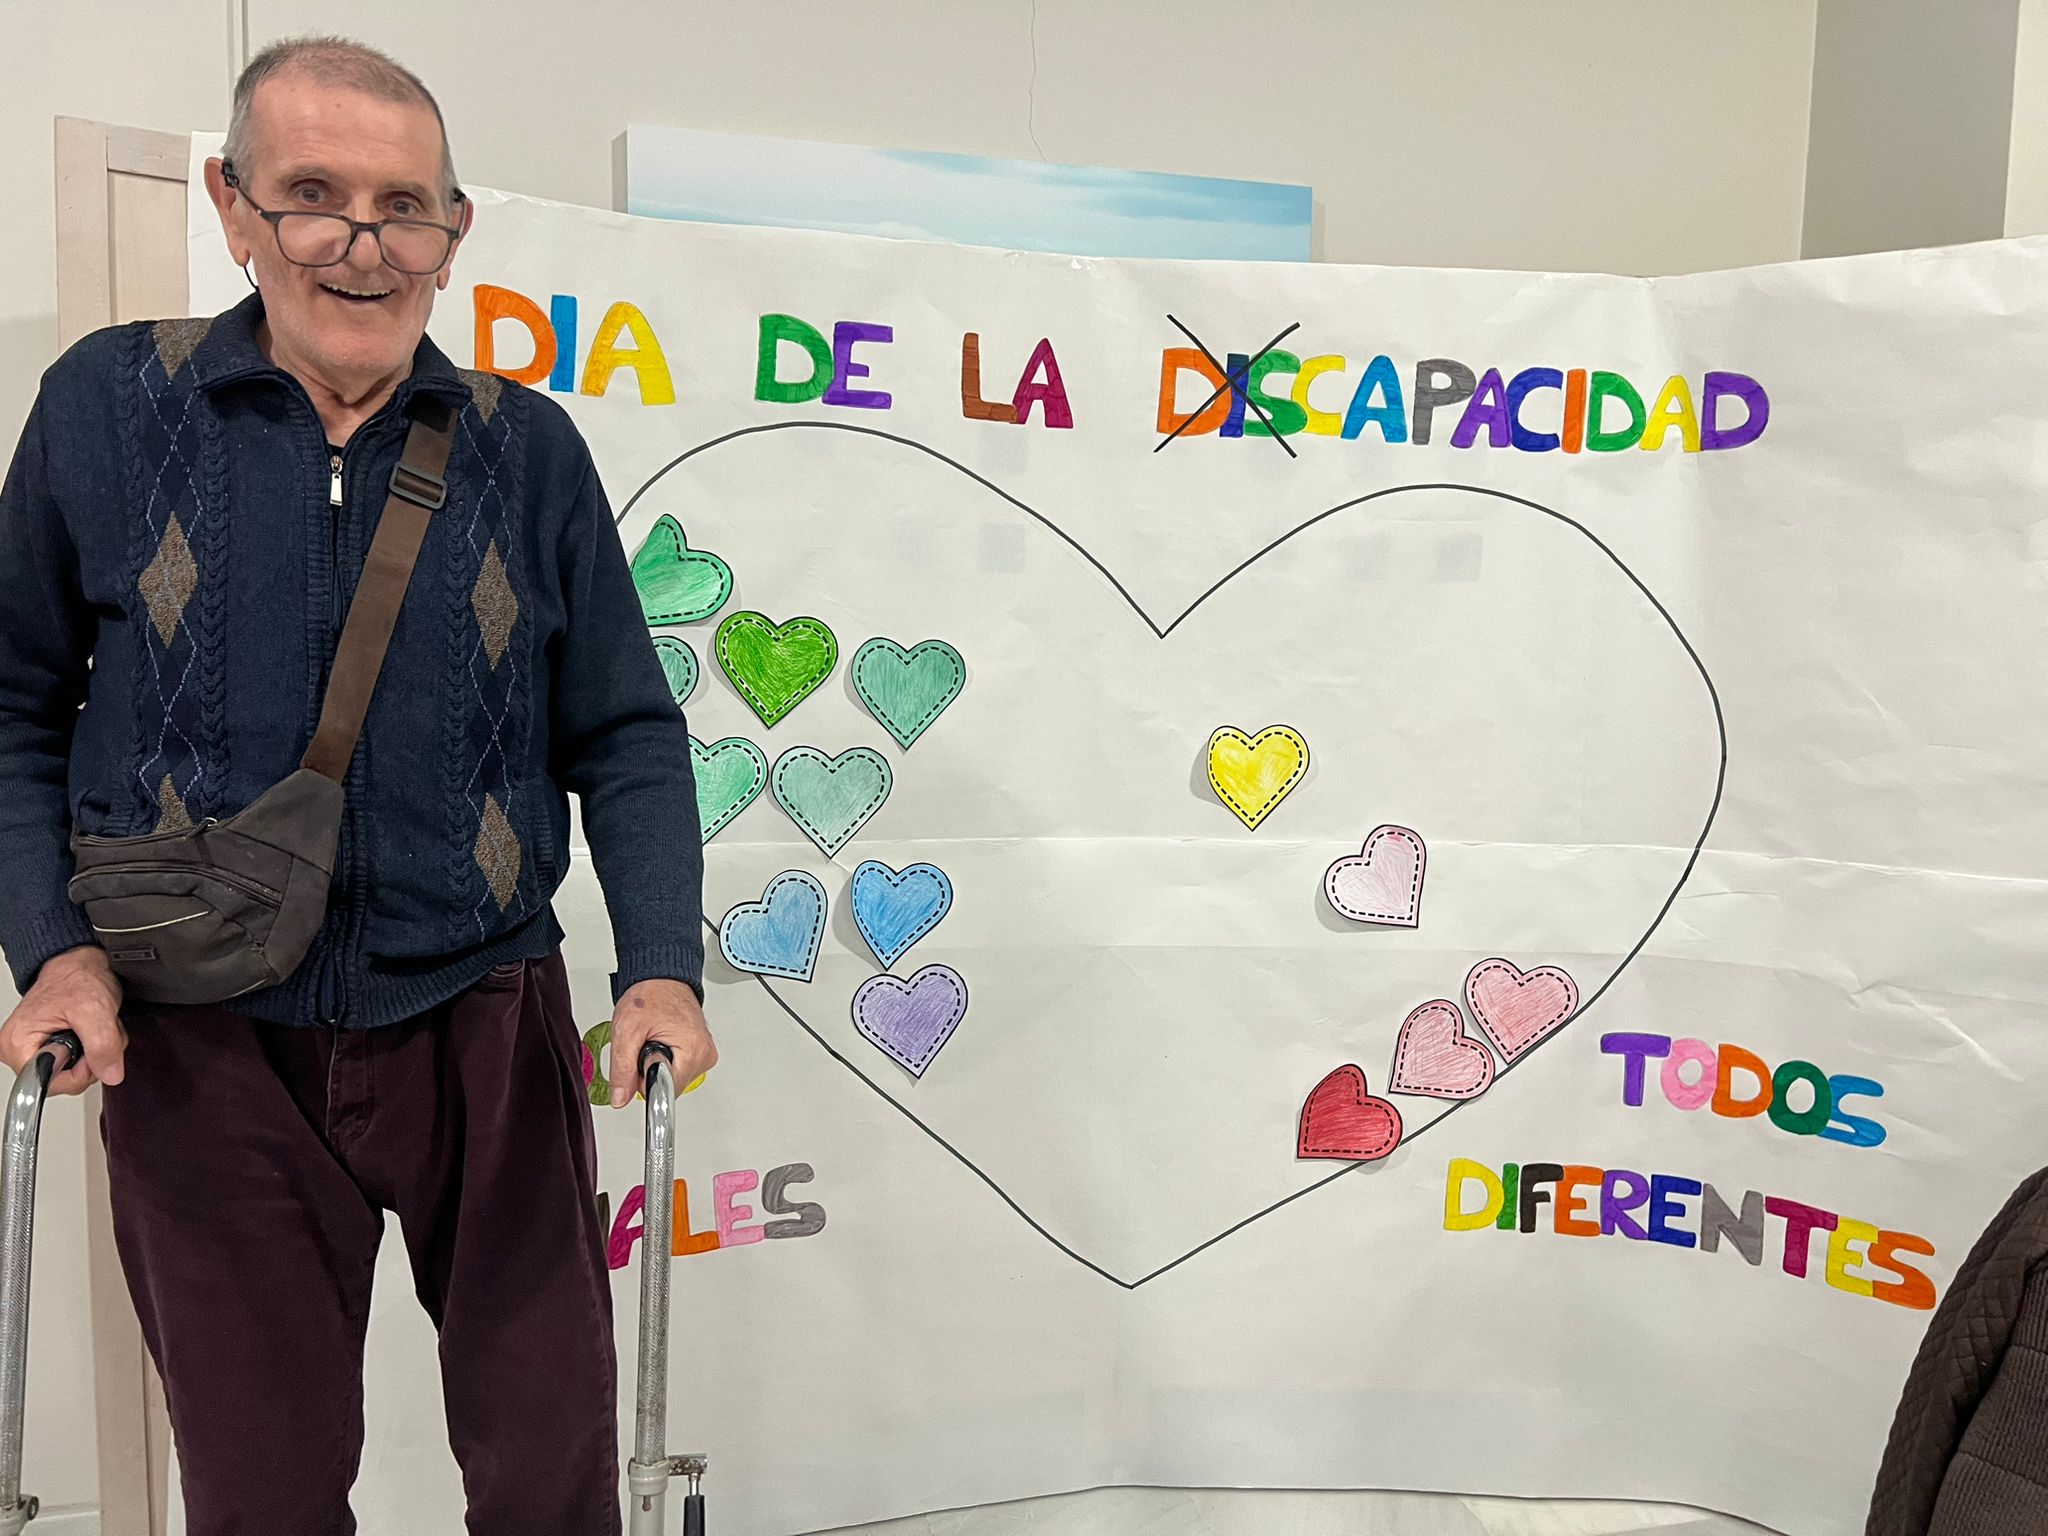 DIA DE LA DISCAPACIDAD
TODOS
DIFERENTES